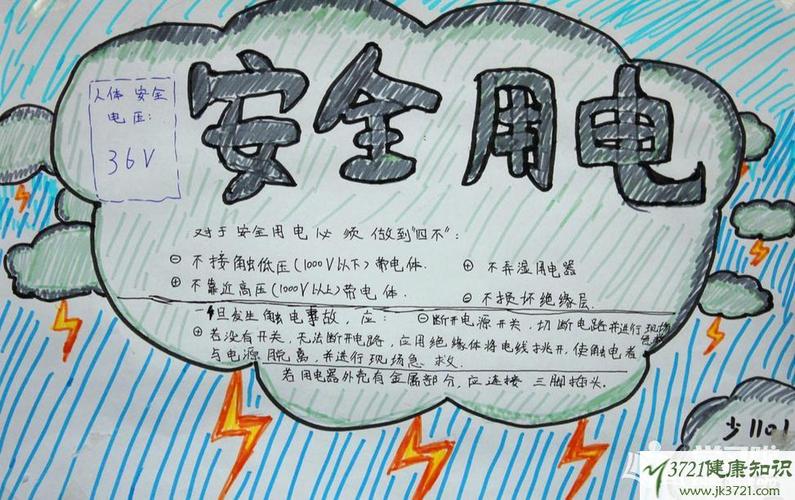 安全用电
人体安全
电压:
36V
对于安全用电必须做到"四不":
⊖不接触低压(1000V以下)带电体. ⊕不弄湿用电器
⊕不靠近高压(1000V以上)带电体. ⊖不损坏绝缘层.
一旦发生触电事故,应:⊖断开电源开关,切断电路并进行现场急救
⊕若没有开关,无法断开电路,应用绝缘体将电线挑开,使触电者
与电源脱离,并进行现场急救.
若用电器外壳有金属部分,应连接三脚插头.
少1101
3721健康知识
www.jk3721.com